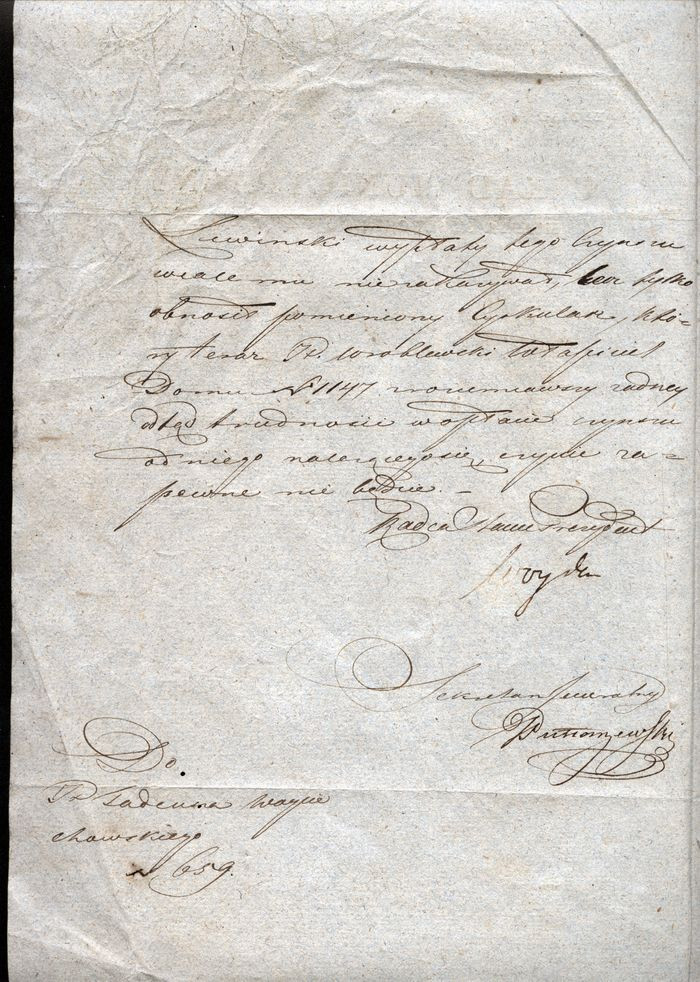 Lewinski wypłaty tego Czynszu
wcale mu nie zakazywał, lecz tylko
obnosił pomieniony Cyrkularz, któ-
ry teraz P. Wroblewski Właściciel
Domu N 1147 zrozumiawszy żadney
odtąd trudności w opłacie czynszu
od niego należącego się, czynić za=
pewne nie będzie. –
Radca Stanu Prezydent
Sekretarz Generalny
Do.
P. Tadeusza Woycie
chowskiego
N 659.